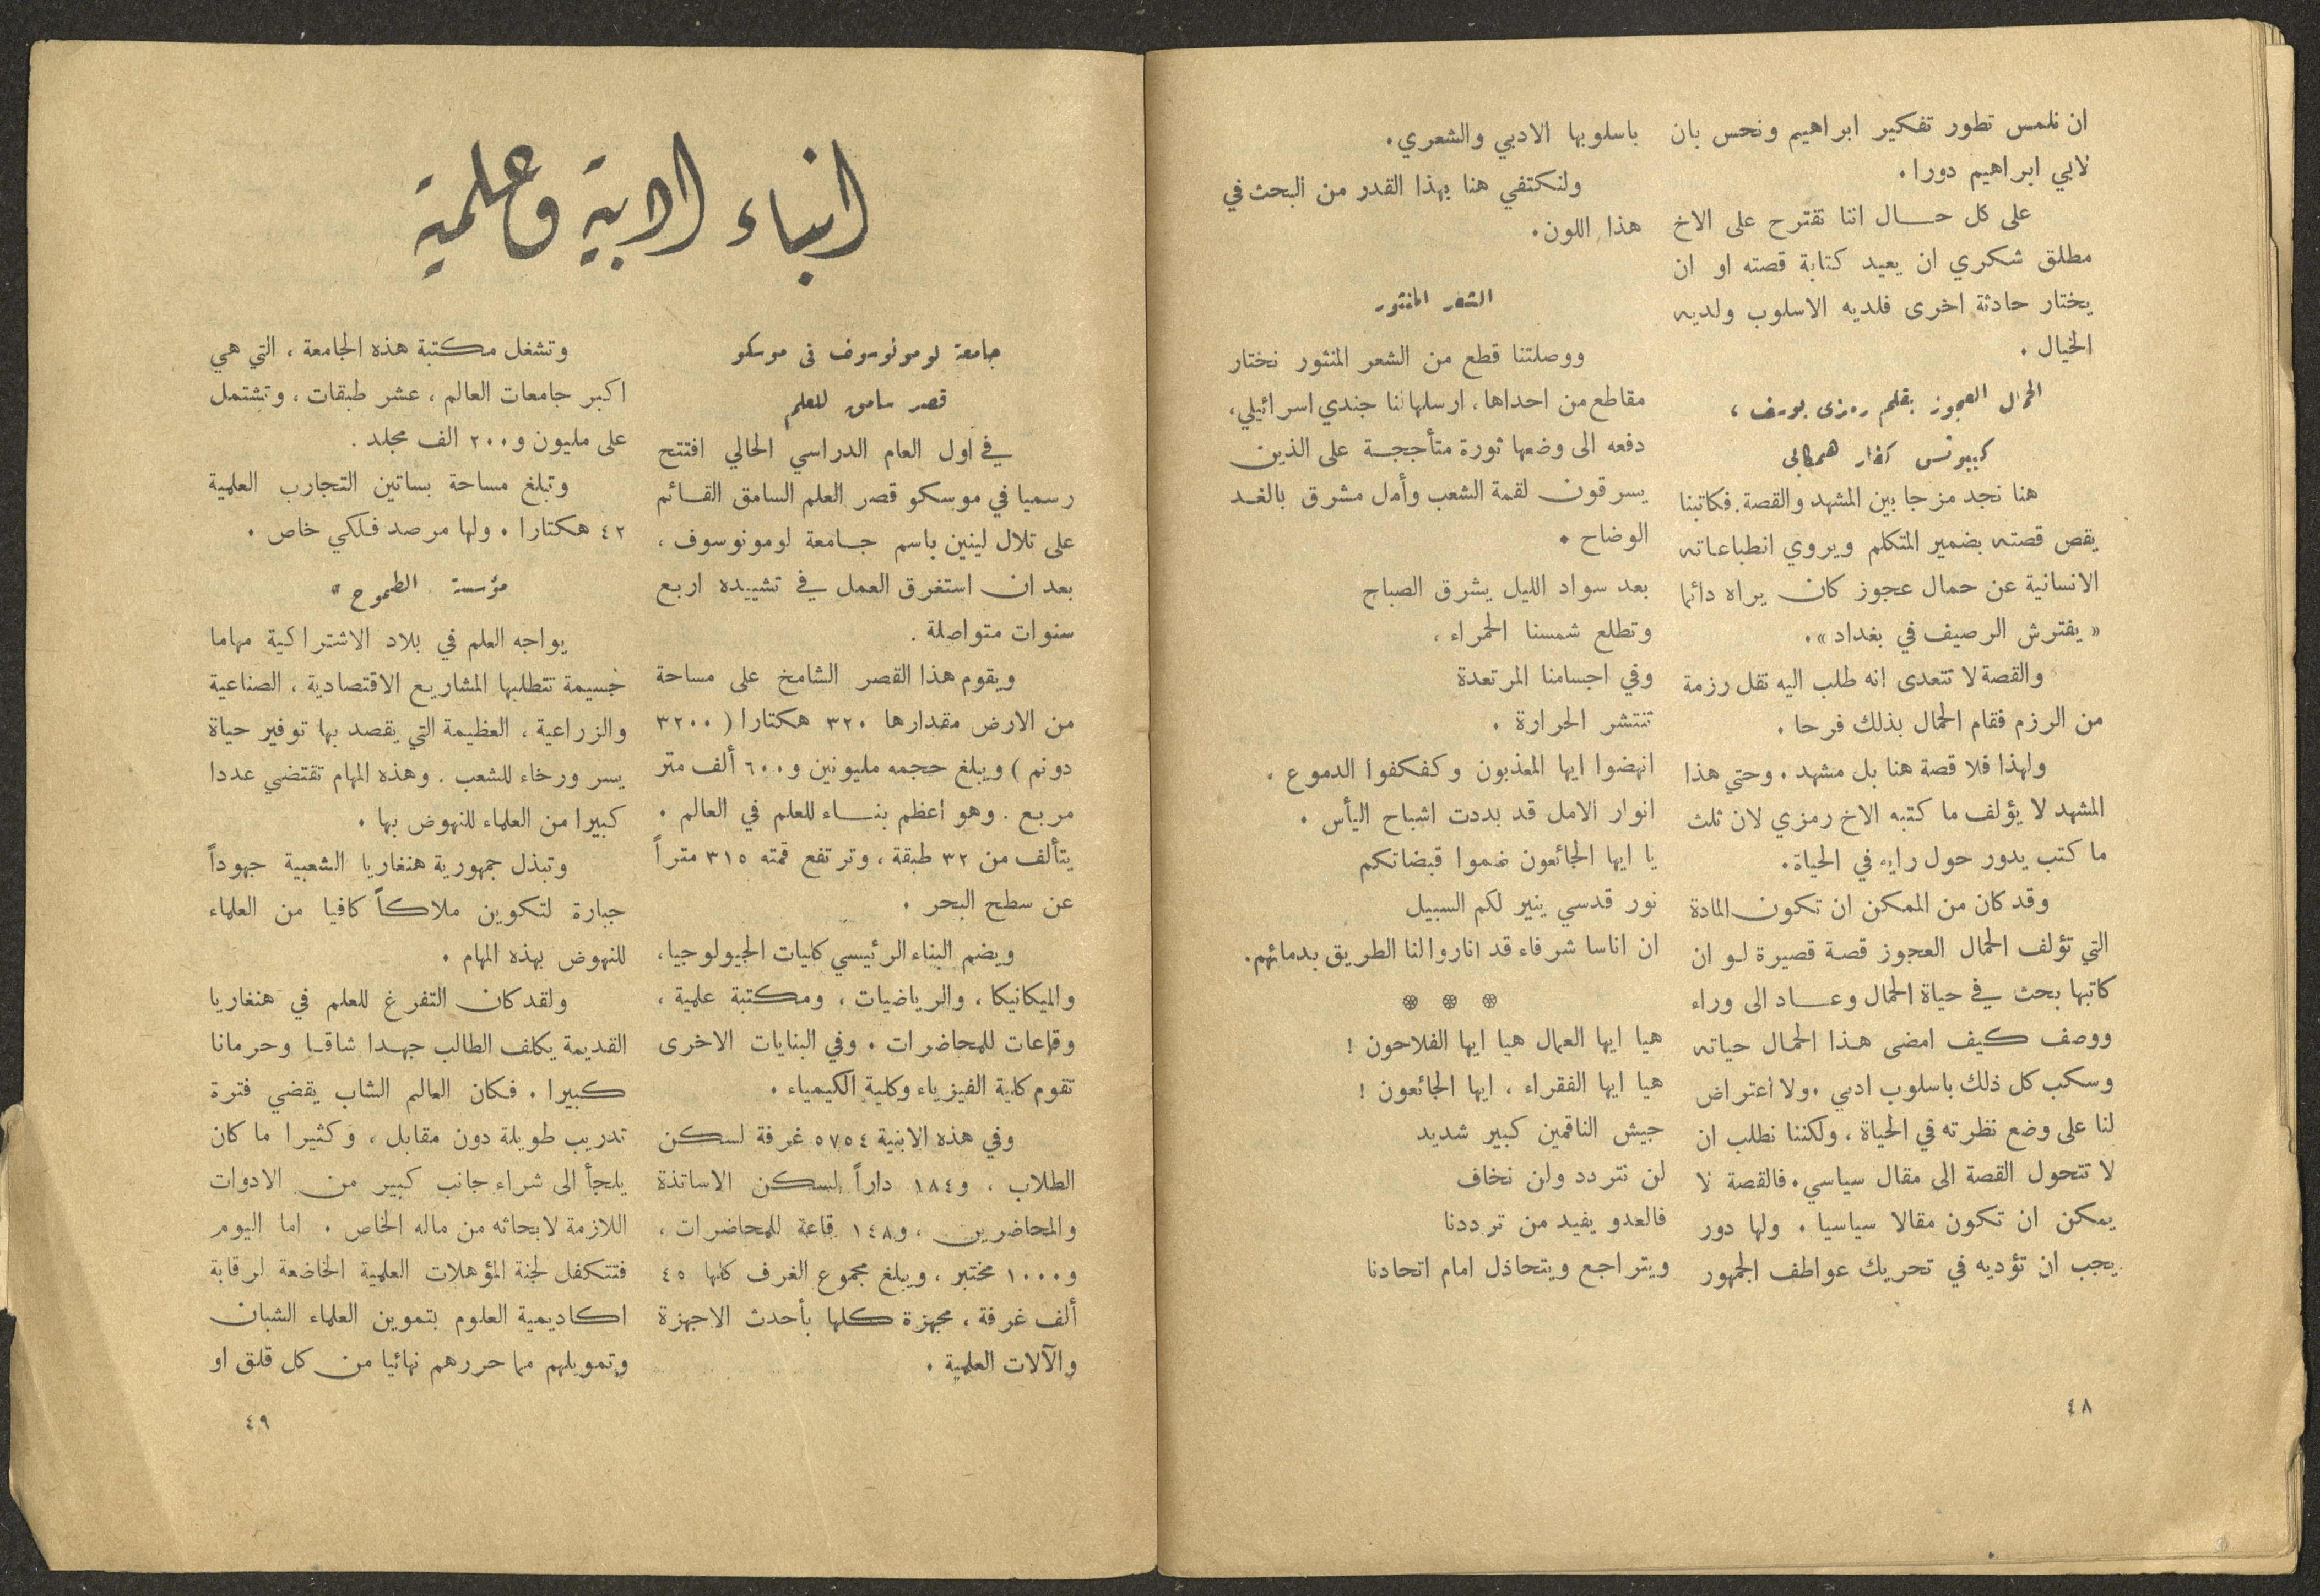 ان نلمس تطور تفكير ابراهيم ونحس بان
لابي ابراهيم دورا.
على كل حال اننا نقترح على الاخ
مطلق شكري ان يعيد كتابة قصته او ان
يختار حادثة اخرى فلديه الاسلوب ولديه
الخيال .
الحمال العجوز بقلم رمزى يوسف ،
كيبوتس كفار همكابى
هنا نجد مزجا بين المشهد والقصة. فكاتبنا
يقص قصته بضمير المتكلم ويروي انطباعاته
الانسانية عن حمال عجوز كان يراه دائما
« يفترش الرصيف في بغداد ».
والقصة لا تتعدى انه طلب اليه نقل رزمة
من الرزم فقام الحمال بذلك فرحا .
ولهذا فلا قصة هنا بل مشهد . وحتى هذا
المشهد لا يؤلف ما كتبه الاخ رمزي لان ثلث
ما كتب يدور حول رايه في الحياة.
وقد كان من الممكن ان تكون المادة
التي تؤلف الحمال العجوز قصة قصيرة لو ان
كاتبها بحث في حياة الحمال وعاد الى وراء
ووصف كيف امضى هذا الحمال حياته
وسكب كل ذلك باسلوب ادبي . ولا اعتراض
لنا على وضع نظرته في الحياة ، ولكننا نطلب ان
لا تتحول القصة الى مقال سياسي. فالقصة لا
يمكن ان تكون مقالا سياسيا . ولها دور
يجب ان تؤديه في تحريك عواطف الجمهور
باسلوبها الادبي والشعري.
ولنكتفي هنا بهذا القدر من البحث في
هذا اللون.
الشعر المنثور
ووصلتنا قطع من الشعر المنثور نختار
مقاطع من احداها، ارسلها لنا جندي اسرائيلي،
دفعه الى وضعها ثورة متأججة على الذين
يسرقون لقمة الشعب وأمل مشرق بالغد
الوضاح .
بعد سواد الليل يشرق الصباح
وتطلع شمسنا الحمراء ،
وفي اجسامنا المرتعدة
تنتشر الحرارة .
انهضوا ايها المعذبون وكفكفوا الدموع .
انوار الامل قد بددت اشباح اليأس .
يا ايها الجائعون ضموا قبضاتكم
نور قدسي ينير لكم السبيل
ان اناسا شرفاء قد اناروا لنا الطريق بدمائهم.
❊ ❊ ❊
هيا ايها العمال هيا ايها الفلاحون !
هيا ايها الفقراء ، ايها الجائعون !
جيش الناقمين كبير شديد
لن نتردد ولن نخاف
فالعدو يفيد من ترددنا
ويتراجع ويتخاذل امام اتحادنا
٤٨
انباء ادبية وعلمية
جامعة لومونوسوف فى موسكو
قصر سامق للعلم
في اول العام الدراسي الحالي افتتح
رسميا في موسكو قصر العلم السامق القائم
على تلال لينين باسم جامعة لومونوسوف ،
بعد ان استغرق العمل في تشييده اربع
سنوات متواصلة .
ويقوم هذا القصر الشامخ على مساحة
من الارض مقدارها ٣٢٠ هكتارا ( ٣٢٠٠
دونم ) ويبلغ حجمه مليونين و ٦٠٠ ألف متر
مربع . وهو اعظم بناء للعلم في العالم .
يتألف من ٣٢ طبقة ، وترتفع قمته ٣١٥ متراً
عن سطح البحر .
ويضم البناء الرئيسي كليات الجيولوجيا،
والميكانيكا ، والرياضيات ، ومكتبة علمية ،
وقاعات للمحاضرات . وفي البنايات الاخرى
تقوم كلية الفيزياء وكلية الكيمياء .
وفي هذه الابنية ٥٧٥٤ غرفة لسكن
الطلاب ، و١٨٤ داراً لسكن الاساتذة
والمحاضرين ، و١٤٨ قاعة للمحاضرات ،
و١٠٠٠ مختبر ، ويبلغ مجموع الغرف كلها ٤٥
ألف غرفة ، مجهزة كلها بأحدث الاجهزة
والآلات العلمية .
وتشغل مكتبة هذه الجامعة ، التي هي
اكبر جامعات العالم ، عشر طبقات ، وتشتمل
على مليون و ٢٠٠ الف مجلد .
وتبلغ مساحة بساتين التجارب العلمية
٤٢ هكتارا . ولها مرصد فلكي خاص .
مؤسسة الطموح
يواجه العلم في بلاد الاشتراكية مهاما
خسيمة تتطلبها المشاريع الاقتصادية ، الصناعية
والزراعية ، العظيمة التي يقصد بها توفير حياة
يسر ورخاء للشعب . وهذه المهام تقتضي عددا
كبيرا من العلماء للنهوض بها .
وتبذل جمهورية هنغاريا الشعبية جهوداً
جبارة لتكوين ملاكاً كافيا من العلماء
للنهوض بهذه المهام .
ولقد كان التفرغ للعلم في هنغاريا
القديمة يكلف الطالب جهدا شاقا وحرمانا
كبيرا . فكان العالم الشاب يقضي فترة
تدريب طويلة دون مقابل ، وكثيرا ما كان
يلجأ الى شراء جانب كبير من الادوات
اللازمة لابحاثه من ماله الخاص . اما اليوم
فتتكفل لجنة المؤهلات العلمية الخاضعة لرقابة
اكاديمية العلوم بتموين العلماء الشبان
وتمويلهم مما حررهم نهائيا من كل قلق او
٤٩